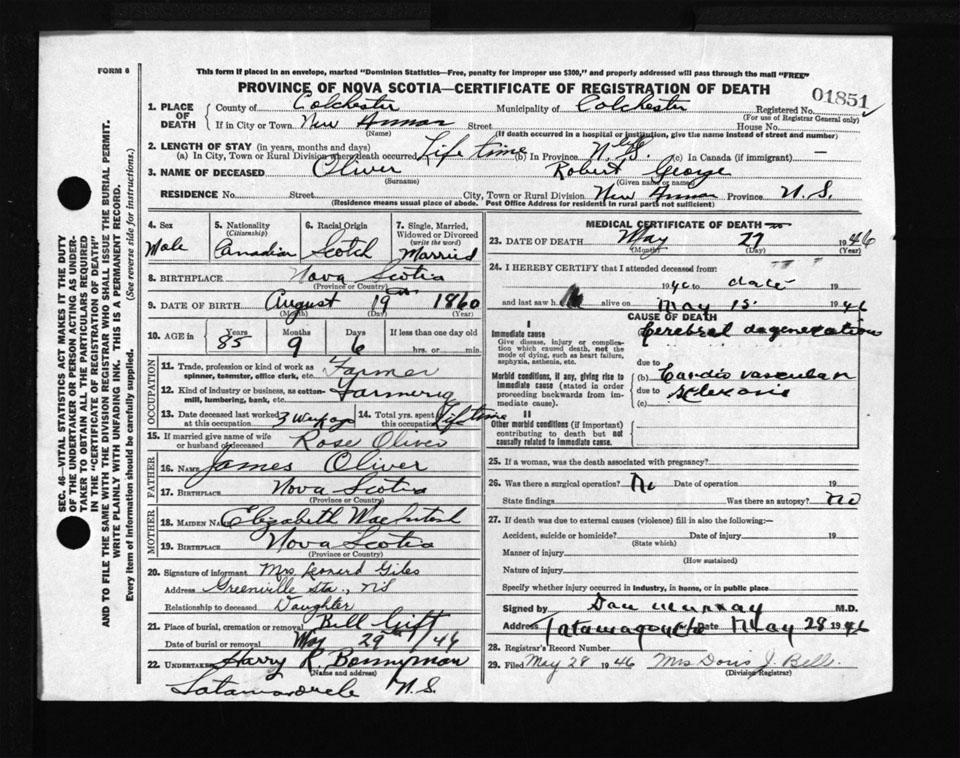 FORM 6
This form if placed in an envelope, marked "Dominion Statistics—Free, penalty for improper use $300," and properly addressed will pass through the mail "FREE"
PROVINCE OF NOVA SCOTIA—CERTIFICATE OF REGISTRATION OF DEATH
01851
1. PLACE OF DEATH County of Colchester Municipality of Colchester Registered No.
(For use of Registrar General only)
If in City or Town New Annan Street House No.
(Name) (If death occurred in a hospital or institution, give the name instead of street and number)
2. LENGTH OF STAY (in years, months and days)
(a) In City, Town or Rural Division where death occurred Life time (b) In Province life N.S. (c) In Canada (if immigrant) —
3. NAME OF DECEASED Oliver Robert George
(Surname) (Given name or names)
RESIDENCE No. Street City, Town or Rural Division New Annan Province N.S.
(Residence means usual place of abode. Post Office Address for residents in rural parts not sufficient)
4. Sex Male
5. Nationality (Citizenship) Canadian
6. Racial Origin Scotch
7. Single, Married, Widowed or Divorced (write the word) Married
8. BIRTHPLACE Nova Scotia
(Province or Country)
9. DATE OF BIRTH August 19th 1860
(Month) (Day) (Year)
10. AGE in Years 85 Months 9 Days 6 If less than one day old
hrs. or min.
OCCUPATION
11. Trade, profession or kind of work as spinner, teamster, office clerk, etc. Farmer
12. Kind of industry or business, as cotton-mill, lumbering, bank, etc. Farming
13. Date deceased last worked at this occupation 3 Weeks ago 14. Total yrs. spent in this occupation Life time
15. If married give name of wife or husband of deceased Rose Oliver
FATHER
16. NAME James Oliver
17. BIRTHPLACE Nova Scotia
(Province or Country)
MOTHER
18. MAIDEN NAME Elizabeth MacIntosh
19. BIRTHPLACE Nova Scotia
(Province or Country)
20. Signature of informant Mrs. Leonard Giles
Address Greenville Sta., N.S.
Relationship to deceased Daughter
21. Place of burial, cremation or removal Bell Gift
Date of burial or removal May 29th 46
22. UNDERTAKER Harry R Bonnyman
(Name and address)
Tatamagouche N.S.
MEDICAL CERTIFICATE OF DEATH
23. DATE OF DEATH May 27 1946
(Month) (Day) (Year)
24. I HEREBY CERTIFY that I attended deceased from:
1940 to date 19
and last saw him alive on May 15 1946
CAUSE OF DEATH
I
Immediate cause Cerebral degeneration
Give disease, injury or complication which caused death, not the mode of dying, such as heart failure, asphyxia, asthenia, etc.
due to
Morbid conditions, if any, giving rise to immediate cause (stated in order proceeding backwards from immediate cause).
(b) Cardio vascular
due to sclerosis
(c)
II
Other morbid conditions (if important) contributing to death but not causally related to immediate cause.
25. If a woman, was the death associated with pregnancy?
26. Was there a surgical operation? No Date of operation 19
State findings Was there an autopsy? No
27. If death was due to external causes (violence) fill in also the following:—
Accident, suicide or homicide? Date of injury 19
(State which)
Manner of injury
(How sustained)
Nature of injury
Specify whether injury occurred in industry, in home, or in public place
Signed by Dan Murray M.D.
Address Tatamagouche Date May 28 1946
28. Registrar's Record Number
29. Filed May 28 1946 Mrs Doris J. Bell
(Division Registrar)
SEC. 46—VITAL STATISTICS ACT MAKES IT THE DUTY
OF THE UNDERTAKER OR PERSON ACTING AS UNDER-
TAKER TO OBTAIN ALL THE PARTICULARS REQUIRED
IN THE "CERTIFICATE OF REGISTRATION OF DEATH"
AND TO FILE THE SAME WITH THE DIVISION REGISTRAR WHO SHALL ISSUE THE BURIAL PERMIT.
WRITE PLAINLY WITH UNFADING INK. THIS IS A PERMANENT RECORD.
Every item of information should be carefully supplied. (See reverse side for instructions.)